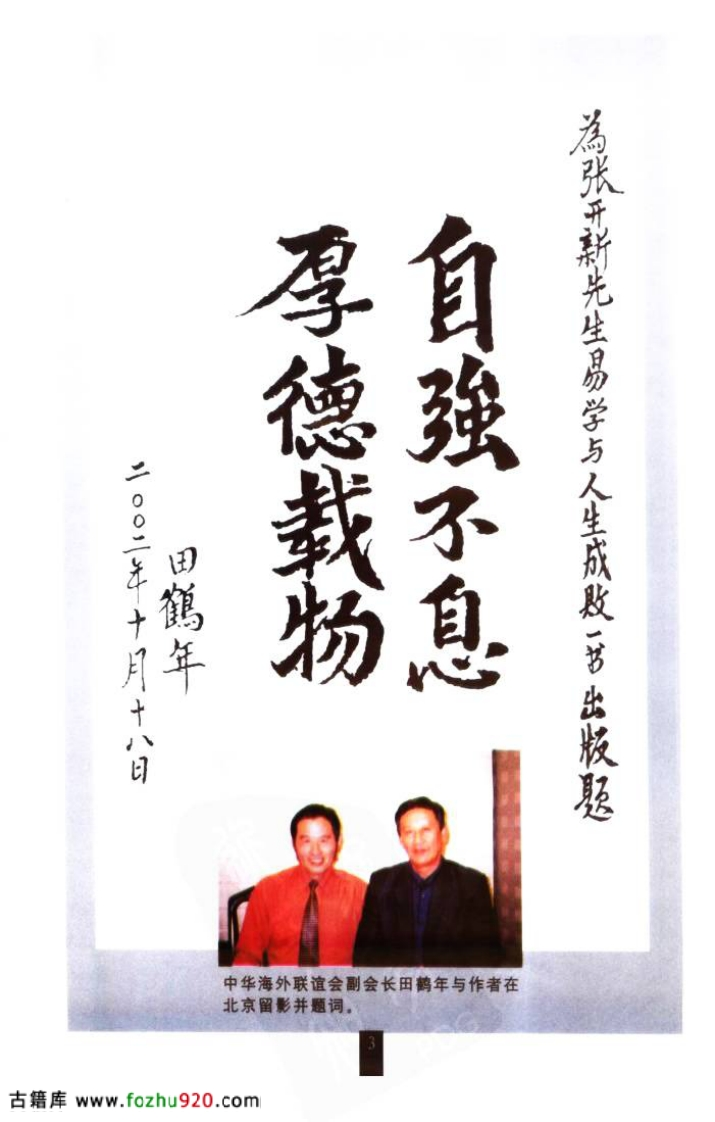 為张开新先生易学与人生成败一书出版题
自強不息
厚德载物
田鶴年
二〇〇二年十月十八日
中华海外联谊会副会长田鹤年与作者在
北京留影并题词。
3
古籍库 www.fozhu920.com